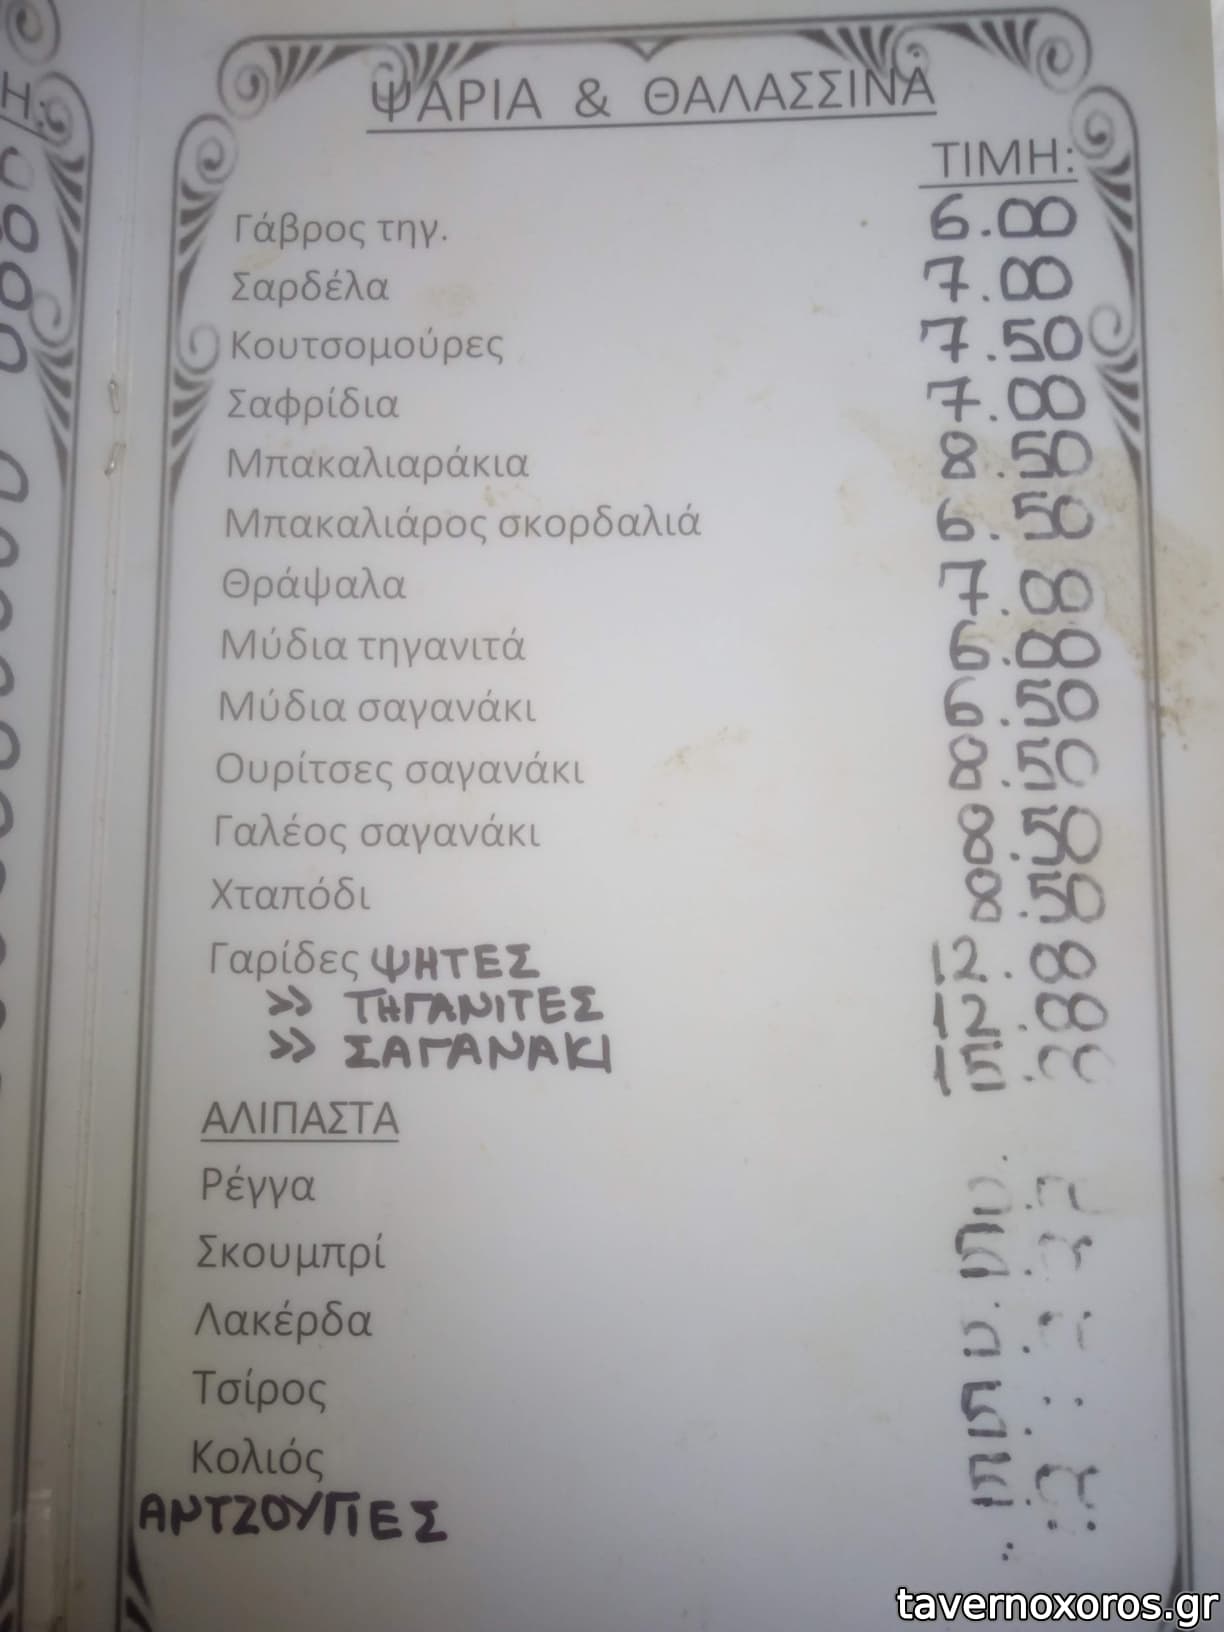 ΨΑΡΙΑ & ΘΑΛΑΣΣΙΝΑ
ΤΙΜΗ:
Γάβρος τηγ. 6.00
Σαρδέλα 7.00
Κουτσομούρες 7.50
Σαφρίδια 7.00
Μπακαλιαράκια 8.50
Μπακαλιάρος σκορδαλιά 6.50
Θράψαλα 7.00
Μύδια τηγανιτά 6.00
Μύδια σαγανάκι 6.50
Ουρίτσες σαγανάκι 8.50
Γαλέος σαγανάκι 8.50
Χταπόδι 8.50
Γαρίδες ΨΗΤΕΣ 12.00
>> ΤΗΓΑΝΙΤΕΣ 12.00
>> ΣΑΓΑΝΑΚΙ
ΑΛΙΠΑΣΤΑ
Ρέγγα
Σκουμπρί
Λακέρδα
Τσίρος
Κολιός
ΑΝΤΖΟΥΓΙΕΣ
tavernoxoros.gr